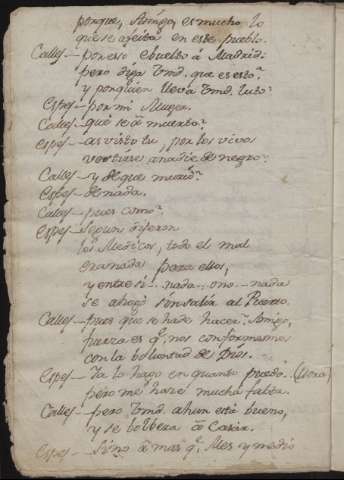 porque, Amigo, es mucho lo
que se afeita en este pueblo.
Calles — por eso e buelto á Madrid:
pero diga Vmd. que es esto?
y porquien lleva Vmd. luto?
Espes — por mi Muger.
Calles — que se á muerto?
Espes — as visto tu, por los vivos
vestirse á nadie de negro?
Calles — y de que murió?
Espes — de nada.
Calles — pues como?
Espes — segun dijeron
los Medicos, todo el mal
era nada para ellos,
y entre si nada, o no nada
se ahogó sin salir al Puerto.
Calles — pues que se ha de hacer? Amigo,
fuerza es q.e nos conformemos
con la boluntad de Dios.
Espes — Ya lo hago en quanto puedo. (llora)
pero me hace mucha falta.
Calles — pero Vmd. ahun está bueno,
y se bolberá á Casar.
Espes — Si no á mas q.e Mes y medio